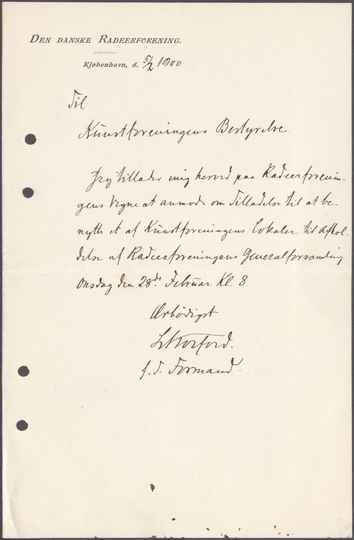 DEN DANSKE RADEERFORENING.
Kjøbenhavn, d. 5/2 1900
Til
Kunstforeningens Bestyrelse.
Jeg tillader mig herved paa Radeerforenin-
gens Vegne at anmode om Tilladelse til at be-
nytte et af Kunstforeningens Lokaler til Afhol-
delse af Radeerforeningens Generalforsamling
Onsdag den 28de Februar Kl. 8
Ærbødigst
f. T. Formand.